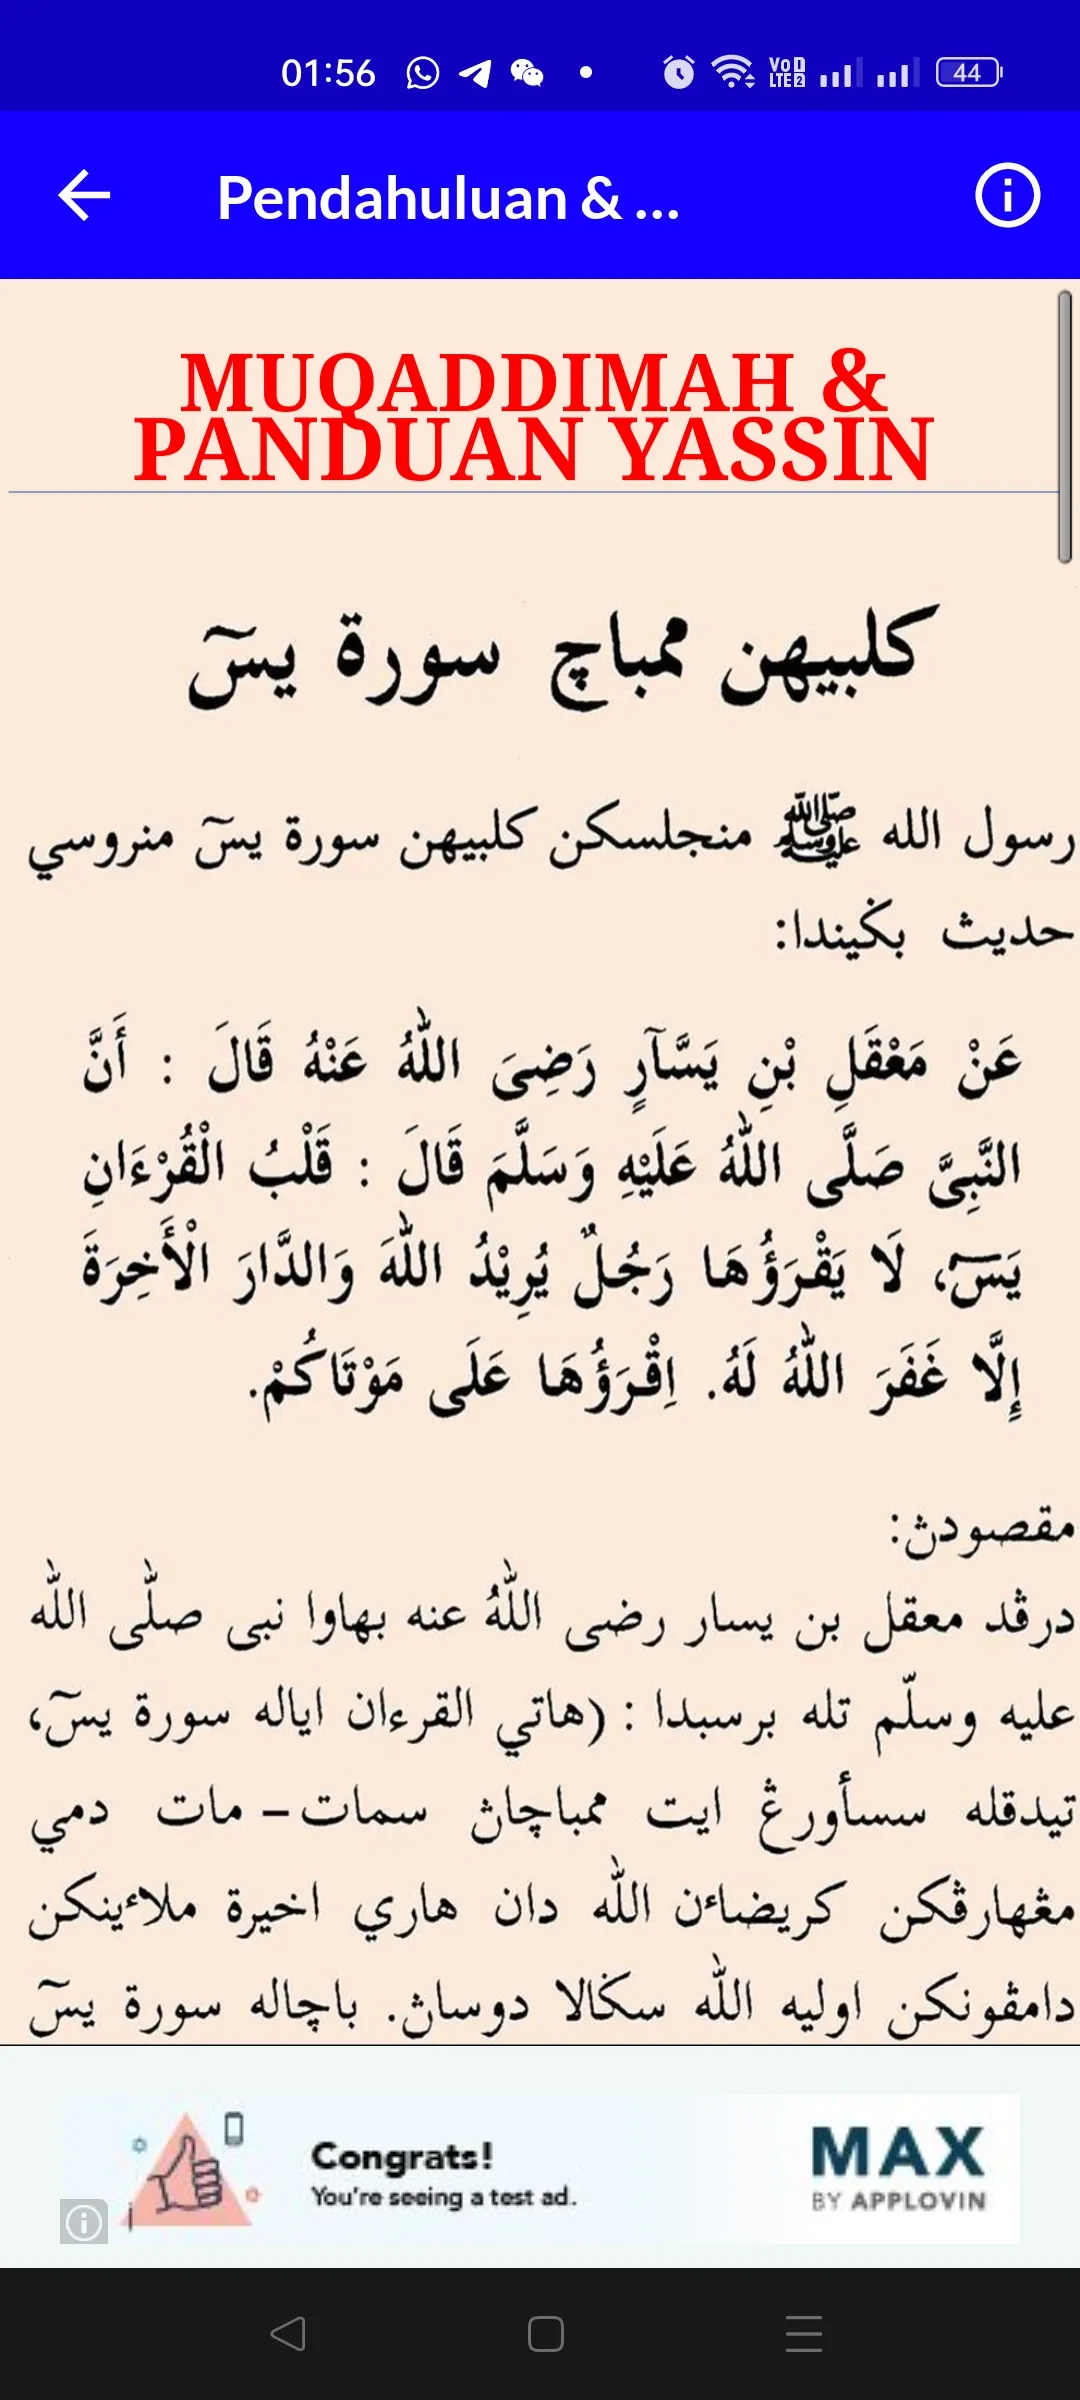 01:56
VoD LTE2
44
Pendahuluan & ...
MUQADDIMAH &
PANDUAN YASSIN
كلبيهن ممباچ سورة يسٓ
رسول الله ﷺ منجلسكن كلبيهن سورة يسٓ منروسي
حديث بݢيندا:
عَنْ مَعْقَلِ بْنِ يَسَّآرٍ رَضِىَ اللهُ عَنْهُ قَالَ : أَنَّ
النَّبِىَّ صَلَّى اللهُ عَلَيْهِ وَسَلَّمَ قَالَ : قَلْبُ الْقُرْءَانِ
يَسٓ، لَا يَقْرَؤُهَا رَجُلٌ يُرِيْدُ اللهَ وَالدَّارَ الْأَخِرَةَ
إِلَّا غَفَرَ اللهُ لَهُ. اِقْرَؤُهَا عَلَى مَوْتَاكُمْ.
مقصودڽ:
درڤد معقل بن يسار رضى اللهُ عنه بهاوا نبى صلّى الله
عليه وسلّم تله برسبدا : (هاتي القرءان اياله سورة يسٓ،
تيدقله سسأورڠ ايت ممباچاڽ سمات – مات دمي
مڠهارڤكن كريضاءن الله دان هاري اخيرة ملاءينكن
دامڤونكن اوليه الله سݢالا دوساڽ. باچاله سورة يسٓ
Congrats!
You're seeing a test ad.
MAX
BY APPLOVIN